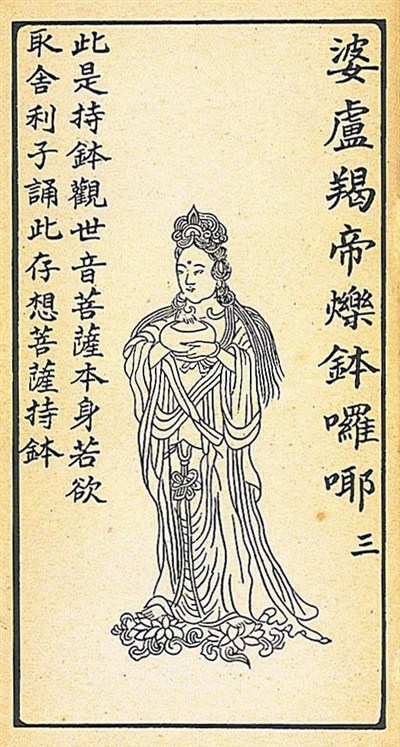 婆盧羯帝爍鉢囉耶 三
此是持鉢觀世音菩薩本身若欲
取舍利子誦此存想菩薩持鉢